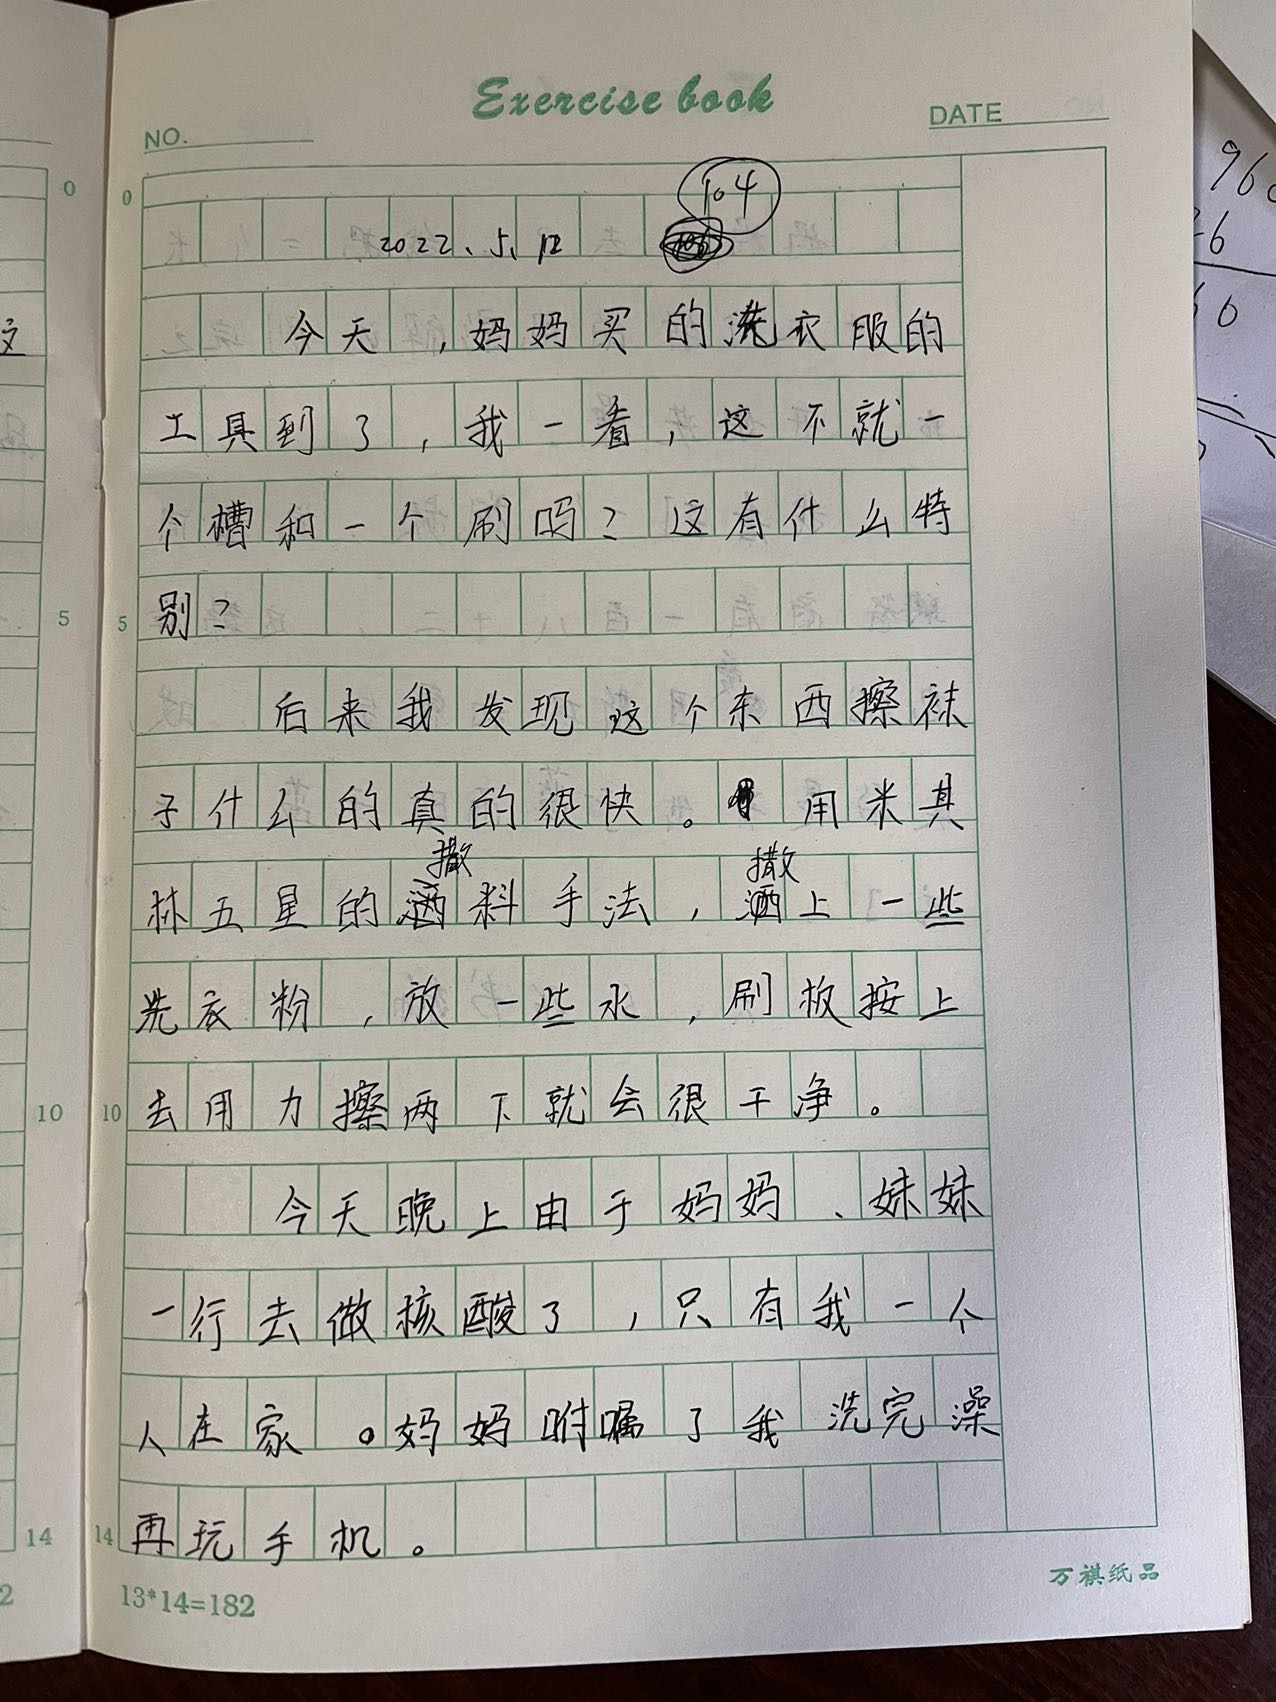 Exercise book
NO.
DATE
104
2022、5、12
今天,妈妈买的洗衣服的
工具到了,我一看,这不就一
个槽和一个刷吗?这有什么特
别?
后来我发现这个东西擦袜
子什么的真的很快。用米其
撒 撒
林五星的洒料手法,洒上一些
洗衣粉,放一些水,刷板按上
去用力擦两下就会很干净。
今天晚上由于妈妈、妹妹
一行去做核酸了,只有我一个
人在家。妈妈咐嘱了我洗完澡
再玩手机。
0
5
10
14
0
5
10
14
13*14=182
万祺纸品
96
60